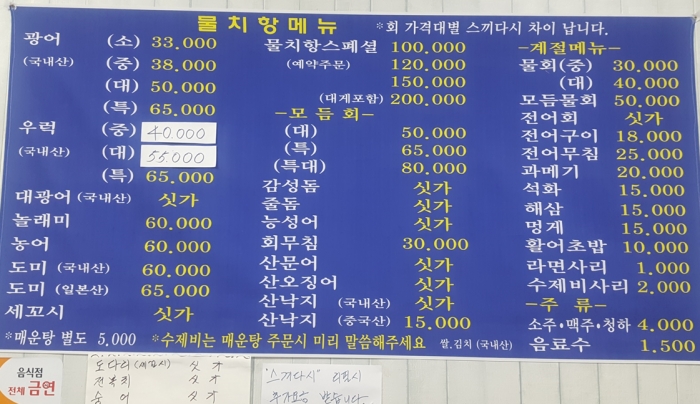 물치항메뉴 *회 가격대별 스끼다시 차이 납니다.
광어 (소) 33.000
(국내산) (중) 38.000
(대) 50.000
(특) 65.000
우럭 (중) 40.000
(국내산) (대) 55.000
(특) 65.000
대광어 (국내산) 싯가
놀래미 60.000
농어 60.000
도미 (국내산) 60.000
도미 (일본산) 65.000
세꼬시 싯가
*매운탕 별도 5.000 *수제비는 매운탕 주문시 미리 말씀해주세요 쌀,김치 (국내산)
물치항스페셜 100.000
(예약주문) 120.000
150.000
(대게포함) 200.000
-모듬회-
(대) 50.000
(특) 65.000
(특대) 80.000
감성돔 싯가
줄돔 싯가
능성어 싯가
회무침 30.000
산문어 싯가
산오징어 싯가
산낙지 (국내산) 싯가
산낙지 (중국산) 15.000
-계절메뉴-
물회(중) 30.000
(대) 40.000
모듬물회 50.000
전어회 싯가
전어구이 18.000
전어무침 25.000
과메기 20.000
석화 15.000
해삼 15.000
멍게 15.000
활어초밥 10.000
라면사리 1.000
수제비사리 2.000
-주류-
소주·맥주·청하 4.000
음료수 1.500
음식점
전체 금연
도다리 (세꼬시) 싯가
전복치 싯가
숭어 싯가
"스끼다시"